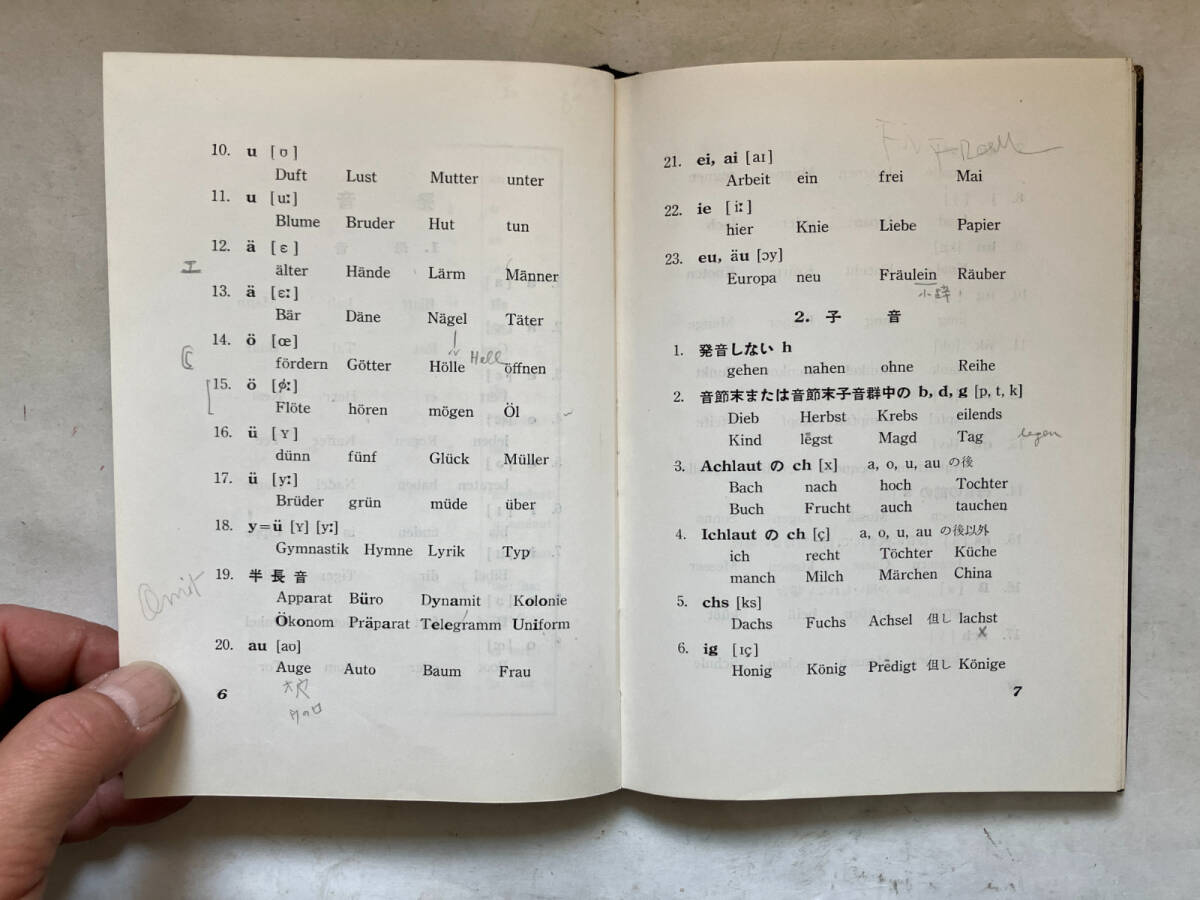 10. u [ʊ]
Duft Lust Mutter unter
11. u [uː]
Blume Bruder Hut tun
12. ä [ɛ]
エ
älter Hände Lärm Männer
13. ä [ɛː]
Bär Däne Nägel Täter
14. ö [œ]
fördern Götter Hölle Hell öffnen
15. ö [øː]
Flöte hören mögen Öl
16. ü [ʏ]
dünn fünf Glück Müller
17. ü [yː]
Brüder grün müde über
18. y=ü [ʏ] [yː]
Gymnastik Hymne Lyrik Typ
19. 半長音
Omit
Apparat Büro Dynamit Kolonie
Ökonom Präparat Telegramm Uniform
20. au [aʊ]
Auge Auto Baum Frau
6
21. ei, ai [aɪ]
Arbeit ein frei Mai
22. ie [iː]
hier Knie Liebe Papier
23. eu, äu [ɔy]
Europa neu Fräulein Räuber
2. 子音
1. 発音しない h
gehen nahen ohne Reihe
2. 音節末または音節末子音群中の b, d, g [p, t, k]
Dieb Herbst Krebs eilends
Kind lēgst Magd Tag legen
3. Achlaut の ch [x] a, o, u, au の後
Bach nach hoch Tochter
Buch Frucht auch tauchen
4. Ichlaut の ch [ç] a, o, u, au の後以外
ich recht Töchter Küche
manch Milch Märchen China
5. chs [ks]
Dachs Fuchs Achsel 但し lachst
x
6. ig [ɪç]
Honig König Prēdigt 但し Könige
7